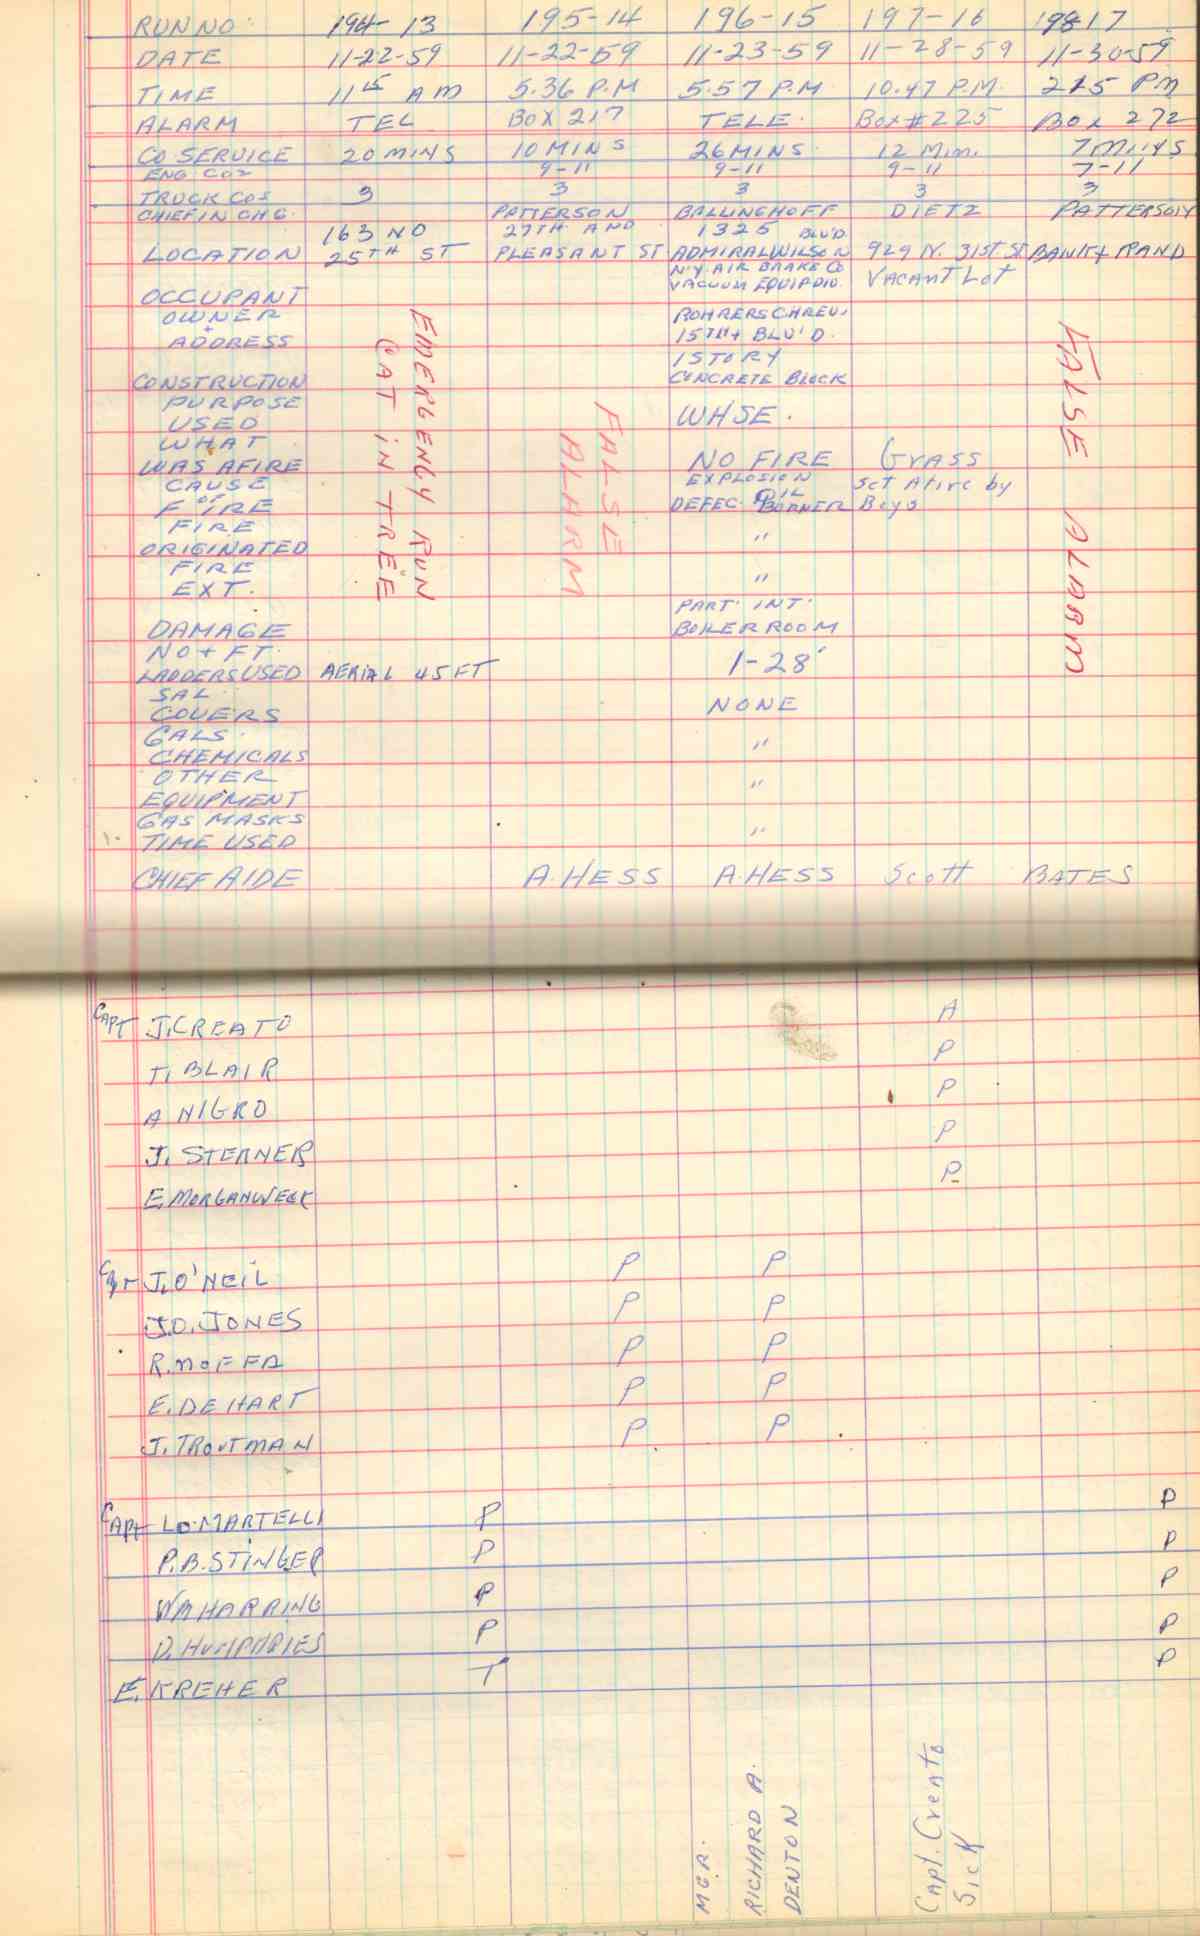 RUN NO: 194-13 195-14 196-15 197-16 198-17
DATE 11-22-59 11-22-59 11-23-59 11-28-59 11-30-59
TIME 11 15 AM 5.36 P.M 5.57 P.M 10.47 P.M. 215 PM
ALARM TEL BOX 217 TELE. Box #225 BOX 272
CO SERVICE 20 MINS 10 MINS 26 MINS. 12 Min. 7 MINS
ENG COS 9-11 9-11 9-11 7-11
TRUCK COS 3 3 3 3 3
CHIEF IN CHG. PATTERSON BALLINGHOFF DIETZ PATTERSON
163 NO 27TH AND 1325 BLV'D
LOCATION 25TH ST PLEASANT ST ADMIRAL WILSON 929 N. 31ST ST BANK + RAND
N.Y. AIR BRAKE CO Vacant Lot
VACUUM EQUIP DIV.
OCCUPANT
OWNER ROHRERS CHREV.
+
ADDRESS 15TH + BLV'D.
1 STORY
CONSTRUCTION CONCRETE BLOCK
PURPOSE
USED WHSE.
WHAT
WAS AFIRE NO FIRE Grass
CAUSE EXPLOSION Set Afire by
OF OIL
FIRE DEFEC. BURNER Boys
FIRE
ORIGINATED "
FIRE
EXT. "
PART. INT.
DAMAGE BOILER ROOM
NO + FT.
LADDERS USED AERIAL 45 FT 1-28'
SAL
COVERS NONE
GALS.
CHEMICALS "
OTHER
EQUIPMENT "
GAS MASKS
TIME USED "
EMERGENCY RUN
CAT IN TREE
FALSE
ALARM
FALSE ALARM
CHIEF AIDE A. HESS A. HESS Scott BATES
CAPT J. CREATO A
T. BLAIR P
A NIGRO P
J. STERNER P
E. MORGANWECK P
CAPT J. O'NEIL P P
J.D. JONES P P
R. MOFFA P P
E. DEHART P P
J. TROUTMAN P P
CAPT LO. MARTELLI P P
P.B. STINGER P P
WM HARRING P P
D. HUMPHRIES P P
E. KREHER T P
MGR.
RICHARD A.
DENTON
Capt. Creato
Sick